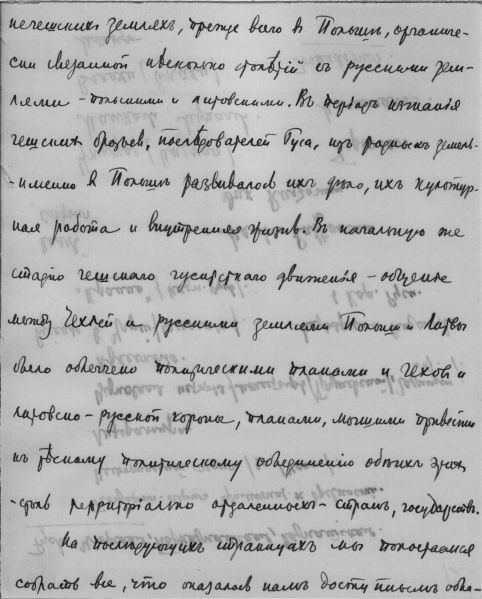 нечешскихъ земляхъ, прежде всего въ Польшѣ, органиче-
ски связанной нѣсколько столѣтій съ русскими зем-
лями - польскими и литовскими. Въ періодъ изгнанія
чешскихъ братьевъ, послѣдователей Гуса, изъ родныхъ земель-
-именно въ Польшѣ развивалось ихъ дѣло, ихъ культур-
ная работа и внутренняя жизнь. Въ начальную же
стадію чешскаго гуситскаго движенія - общение
между Чехіей и русскими землями Польши и Литвы
было облегчено политическими планами и чеховъ и
литовско-русской короны, планами, могшими привести
къ тѣсному политическому объединенію обоихъ этихъ
-столь территоріально отдаленныхъ-странъ, государствъ.
На послѣдующихъ страницахъ мы попытаемся
собрать все, что оказалось намъ доступнымъ обна-